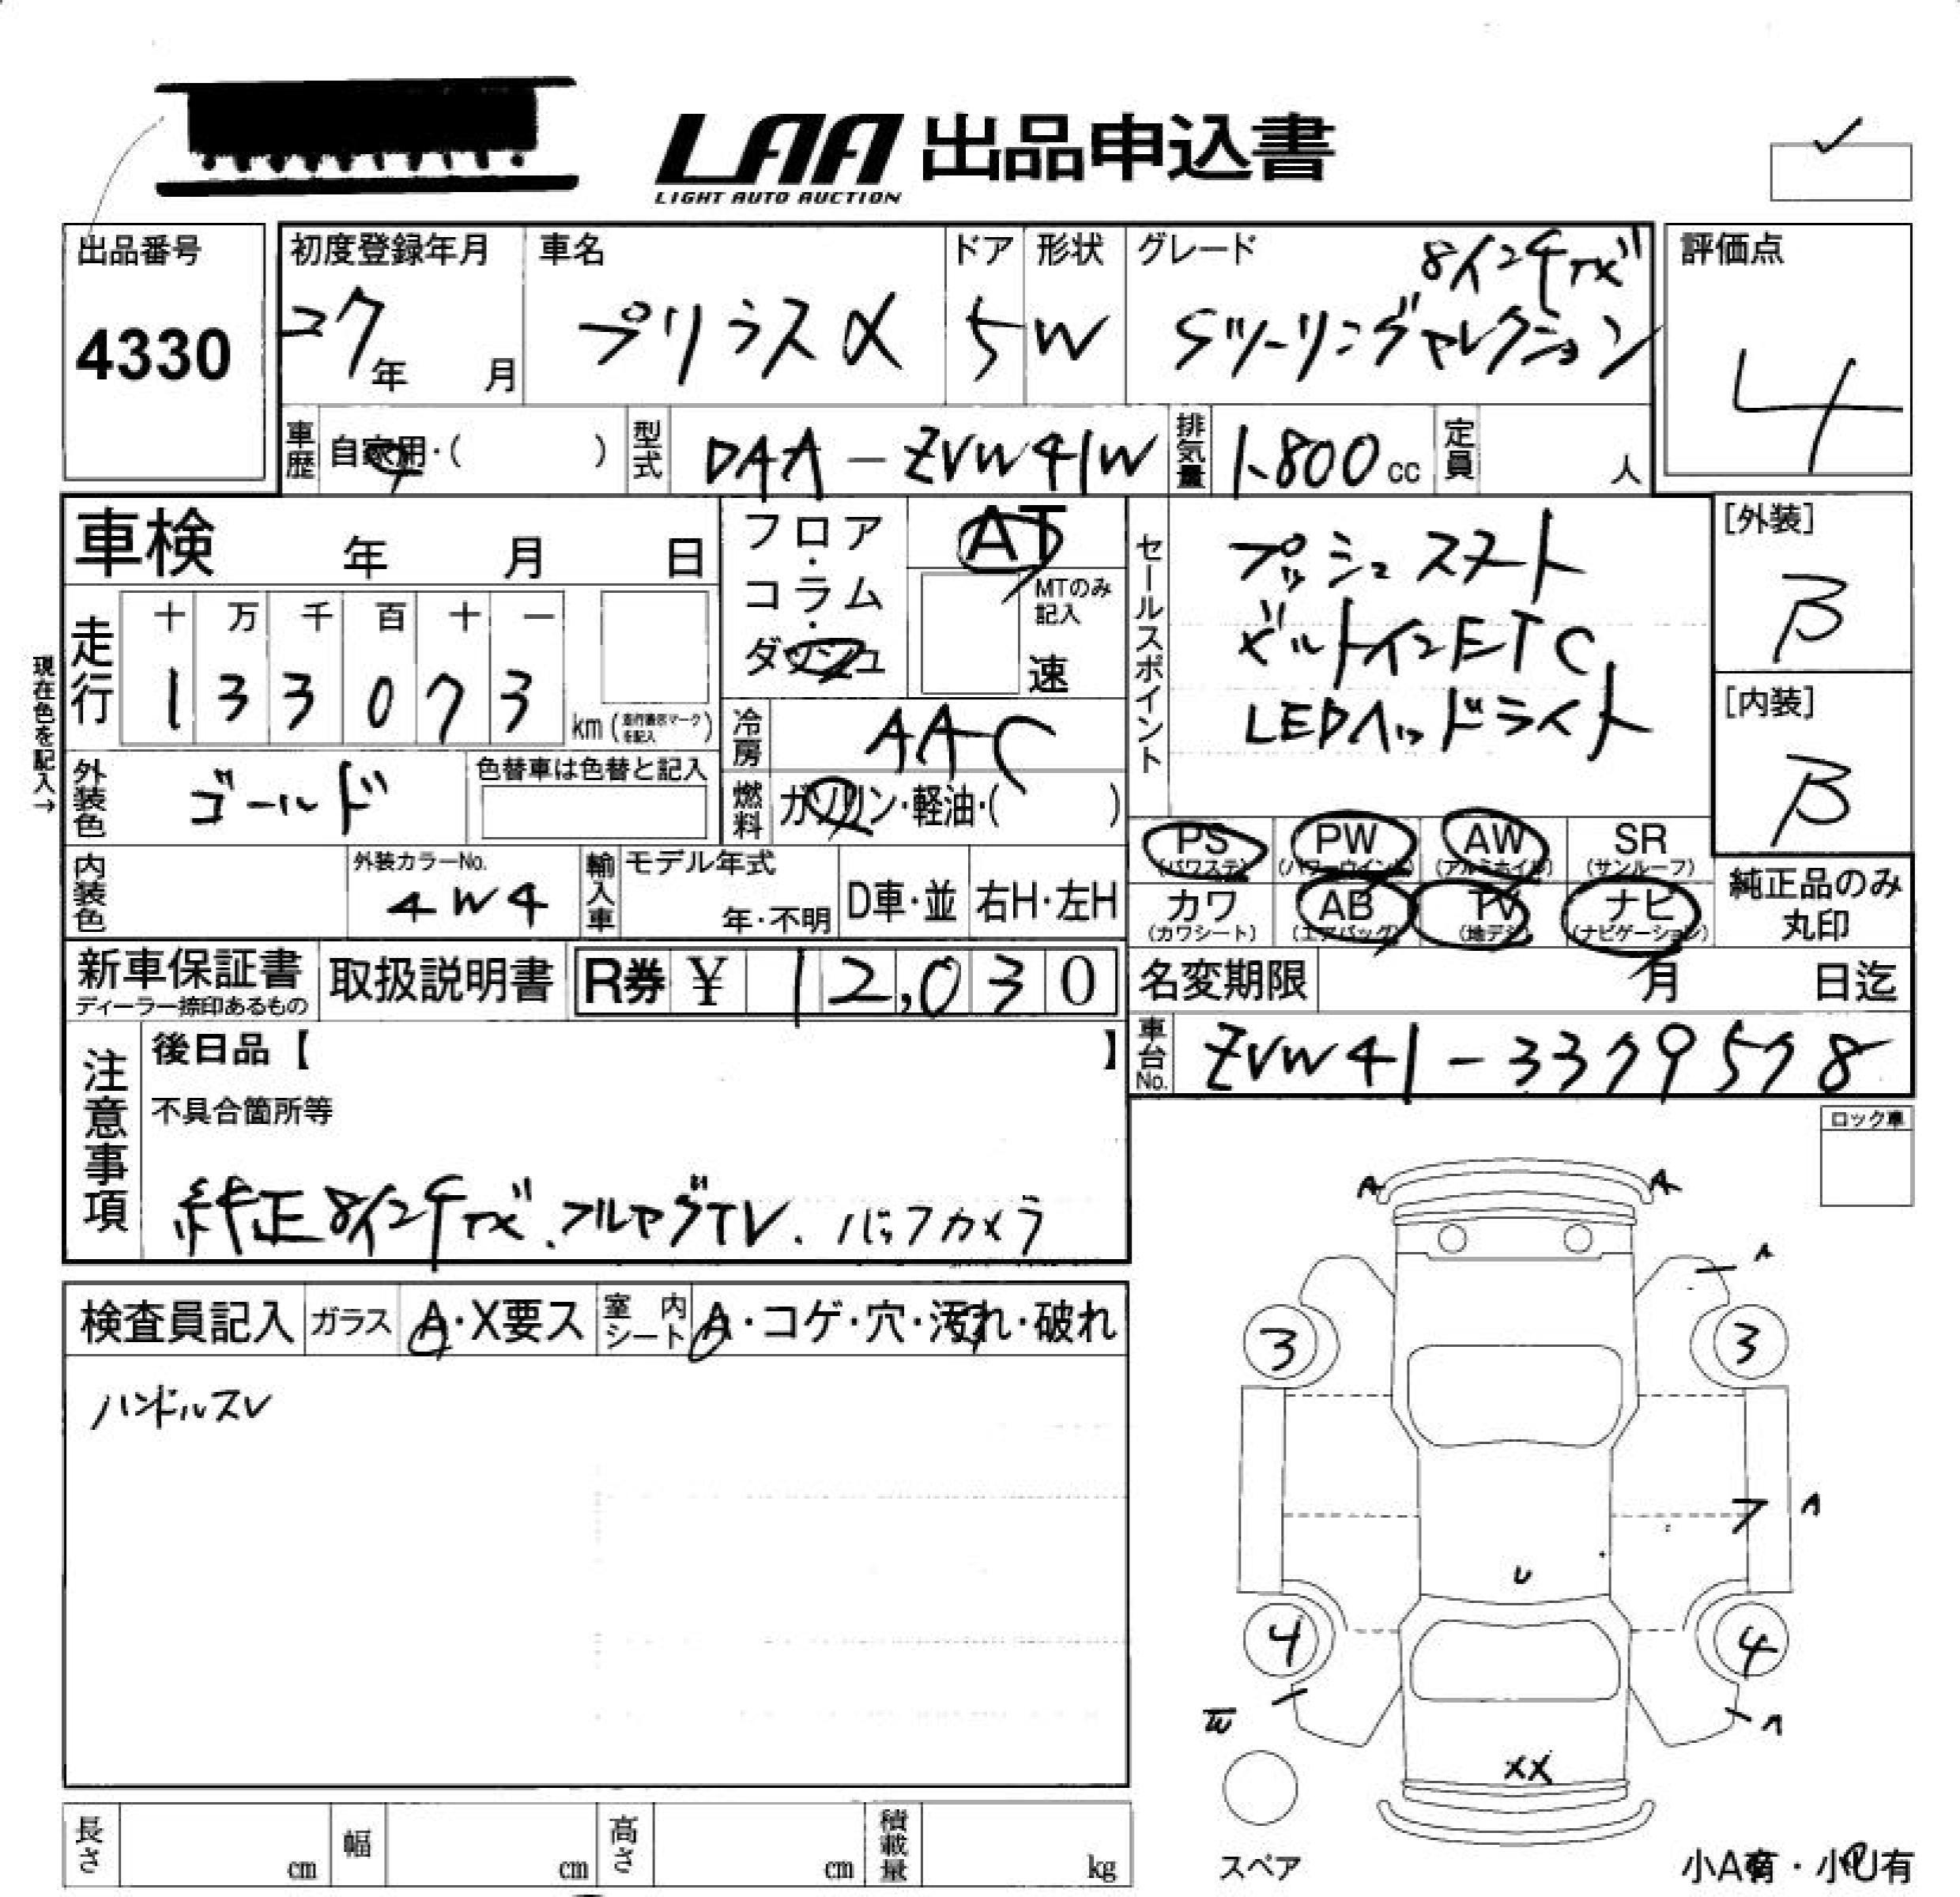 LAA 出品申込書
LIGHT AUTO AUCTION
出品番号
4330
初度登録年月
27年 月
車名
プリウスα
ドア
5
形状
W
グレード
8インチナビ
Sツーリングセレクション
評価点
4
車歴
自家用・( )
型式
DAA-ZVW41W
排気量
1,800cc
定員
人
車検 年 月 日
フロア・コラム・ダッシュ
AT
MTのみ記入
速
セールスポイント
プッシュスタート
ビルトインETC
LEDヘッドライト
[外装]
B
[内装]
B
現在色を記入→
走行
十 万 千 百 十 一
1 3 3 0 7 3
km(走行表示マークを記入)
冷房
AAC
燃料
ガソリン・軽油・( )
外装色
ゴールド
色替車は色替と記入
PS
(パワステ)
PW
(パワーウインド)
AW
(アルミホイル)
SR
(サンルーフ)
カワ
(カワシート)
AB
(エアバッグ)
TV
(地デジ)
ナビ
(ナビゲーション)
純正品のみ
丸印
内装色
外装カラーNo.
4W4
輸入車
モデル年式
年・不明
D車・並
右H・左H
新車保証書
ディーラー捺印あるもの
取扱説明書
R券 ¥ 12,030
名変期限
月 日迄
車台No.
ZVW41-3379578
注意事項
後日品【 】
不具合箇所等
純正8インチナビ.フルセグTV.バックカメラ
ロック車
検査員記入
ガラス
A・X要ス
室内シート
A・コゲ・穴・汚れ・破れ
ハンドルスレ
A A
A
3 3
7 A
U
4 4
W
A
XX
スペア
小A有・小U有
長さ cm
幅 cm
高さ cm
積載量 kg